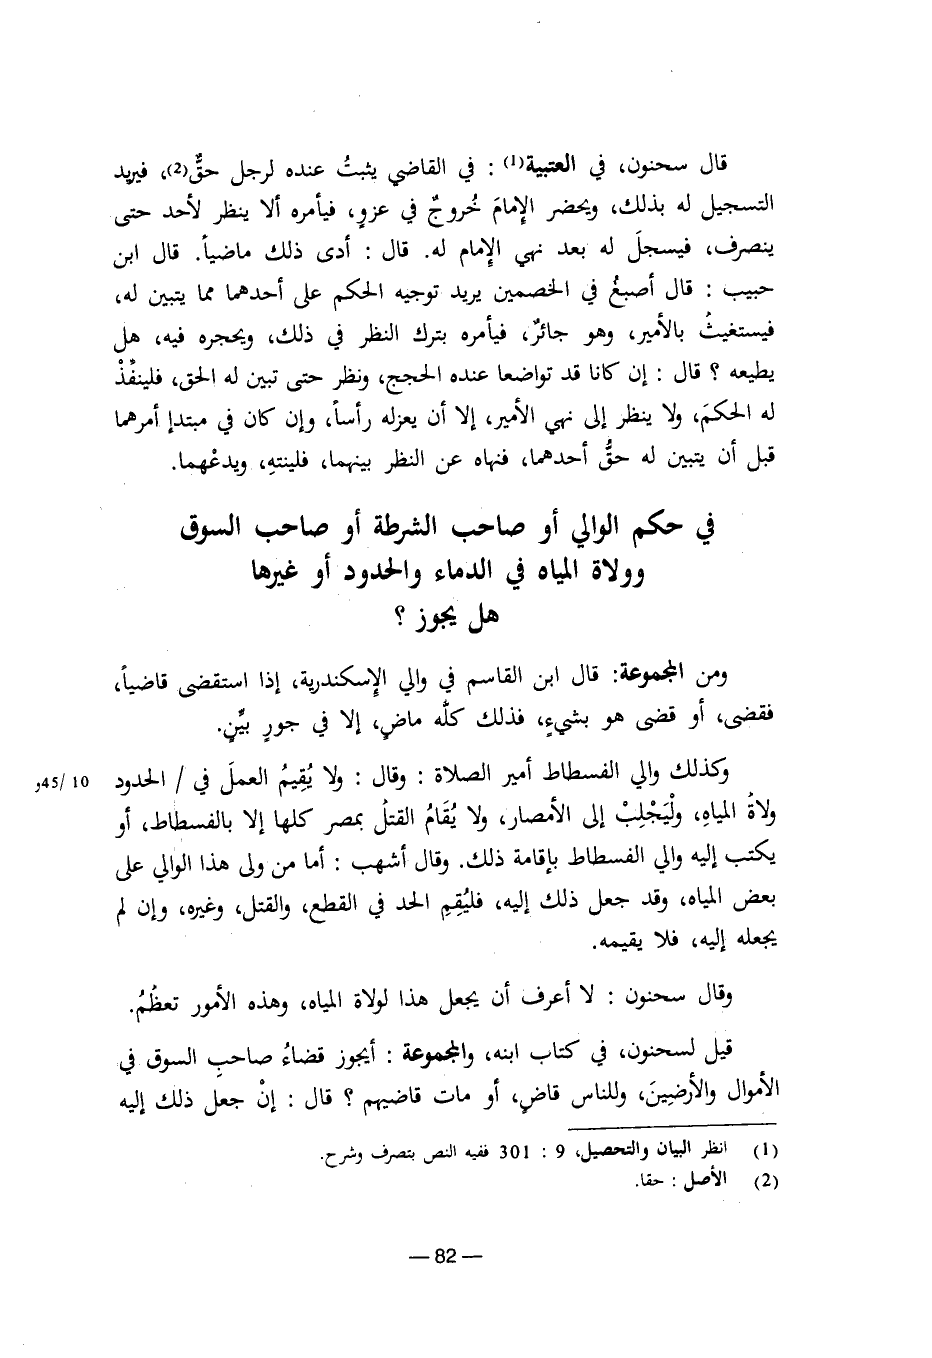 قال سحنون، في العتبية(1) : في القاضي يثبتُ عنده لرجل حقٌّ(2)، فيريد
التسجيل له بذلك، ويحضر الإمامَ خُروجٌ في غزوٍ، فيأمره ألا ينظر لأحد حتى
ينصرف، فيسجلَ له بعد نهي الإمام له. قال : أدى ذلك ماضياً. قال ابن
حبيب : قال أصبغُ في الخصمين يريد توجيه الحكم على أحدهما مما يتبين له،
فيستغيثُ بالأمير، وهو جائرٌ، فيأمره بترك النظر في ذلك، ويحجره فيه، هل
يطيعه ؟ قال : إن كانا قد تواضعا عنده الحجج، ونظر حتى تبين له الحق، فلينفِّذْ
له الحكمَ، ولا ينظر إلى نهي الأمير، إلا أن يعزله رأساً، وإن كان في مبتدإ أمرهما
قبل أن يتبين له حقُّ أحدهما، فنهاه عن النظر بينهما، فلينتهِ، ويدعْهما.
في حكم الوالي أو صاحب الشرطة أو صاحب السوق
وولاة المياه في الدماء والحدود أو غيرها
هل يجوز ؟
ومن المجموعة: قال ابن القاسم في والي الإسكندرية، إذا استقضى قاضياً،
فقضى، أو قضى هو بشيءٍ، فذلك كلُّه ماضٍ، إلا في جورٍ بيِّنٍ.
وكذلك والي الفسطاط أمير الصلاة : وقال : ولا يُقِيمُ العملَ في / الحدود 10 /45و
ولاةُ المياهِ، ولْيَجْلِبْ إلى الأمصار، ولا يُقَامُ القتلُ بمصر كلها إلا بالفسطاط، أو
يكتب إليه والي الفسطاط بإقامة ذلك. وقال أشهب : أما من ولى هذا الوالي على
بعض المياه، وقد جعل ذلك إليه، فليُقِمِ الحد في القطع، والقتل، وغيره، وإن لم
يجعله إليه، فلا يقيمه.
وقال سحنون : لا أعرف أن يجعل هذا لولاة المياه، وهذه الأمور تعظُمُ.
قيل لسحنون، في كتاب ابنه، والمجموعة : أيجوز قضاءُ صاحبِ السوق في
الأموال والأرضِينَ، وللناس قاضٍ، أو مات قاضيهم ؟ قال : إنْ جعل ذلك إليه
(1) انظر البيان والتحصيل، 9 : 301 ففيه النص بتصرف وشرح.
(2) الأصل : حقا.
— 82 —